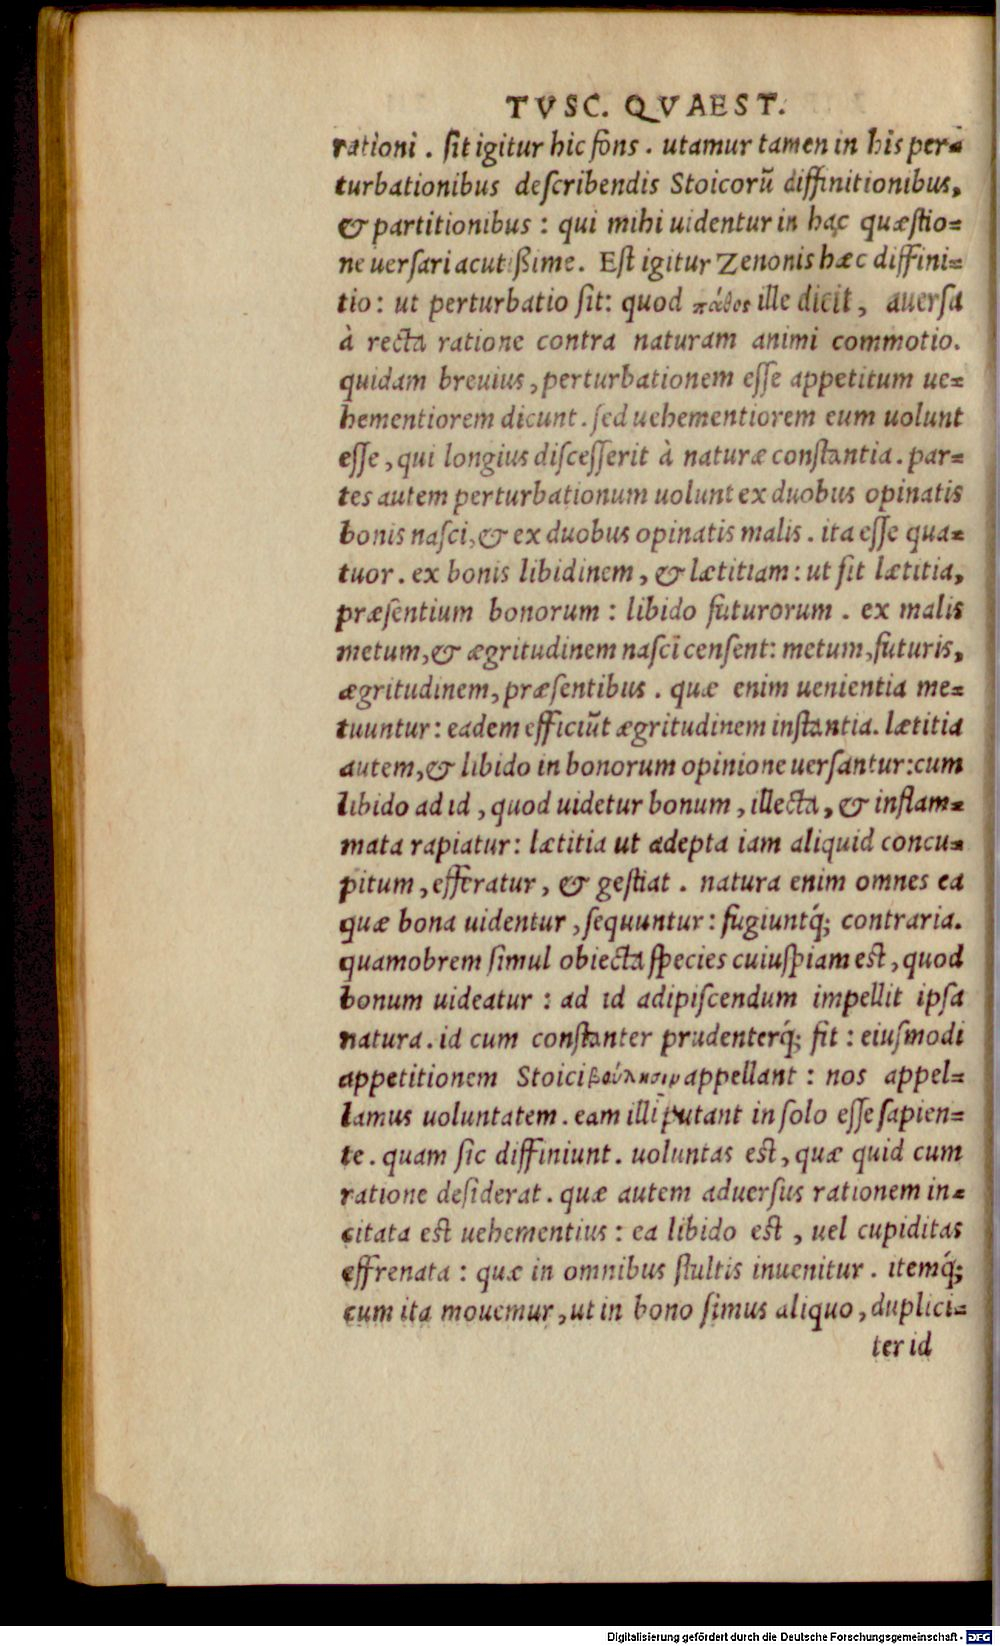 TVSC. QVAEST.
rationi . ſit igitur hic fons . utamur tamen in his per=
turbationibus deſcribendis Stoicorũ diffinitionibus,
& partitionibus : qui mihi uidentur in hac quæſtio=
ne uerſari acutißime. Eſt igitur Zenonis hæc diffini=
tio: ut perturbatio ſit: quod πάθος ille dicit, auerſa
à recta ratione contra naturam animi commotio.
quidam breuius, perturbationem eſſe appetitum ue=
hementiorem dicunt. ſed uehementiorem eum uolunt
eſſe, qui longius diſceſſerit à naturæ conſtantia. par=
tes autem perturbationum uolunt ex duobus opinatis
bonis naſci, & ex duobus opinatis malis . ita eſſe qua=
tuor. ex bonis libidinem, & lætitiam: ut ſit lætitia,
præſentium bonorum : libido futurorum . ex malis
metum, & ægritudinem naſci cenſent: metum, futuris,
ægritudinem, præſentibus . quæ enim uenientia me=
tuuntur: eadem efficiũt ægritudinem inſtantia. lætitia
autem, & libido in bonorum opinione uerſantur: cum
libido ad id, quod uidetur bonum, illecta, & inflam=
mata rapiatur: lætitia ut adepta iam aliquid concu=
pitum, efferatur, & geſtiat . natura enim omnes ea
quæ bona uidentur, ſequuntur: fugiuntq́; contraria.
quamobrem ſimul obiecta ſpecies cuiuſpiam eſt, quod
bonum uideatur : ad id adipiſcendum impellit ipſa
natura. id cum conſtanter prudenterq́; fit : eiuſmodi
appetitionem Stoici βούλησιν appellant : nos appel=
lamus uoluntatem. eam illi putant in ſolo eſſe ſapien=
te. quam ſic diffiniunt. uoluntas eſt, quæ quid cum
ratione deſiderat. quæ autem aduerſus rationem in=
citata eſt uehementius : ea libido eſt, uel cupiditas
effrenata : quæ in omnibus ſtultis inuenitur. itemq́;
cum ita mouemur, ut in bono ſimus aliquo, duplici=
ter id
Digitalisierung gefördert durch die Deutsche Forschungsgemeinschaft - DFG